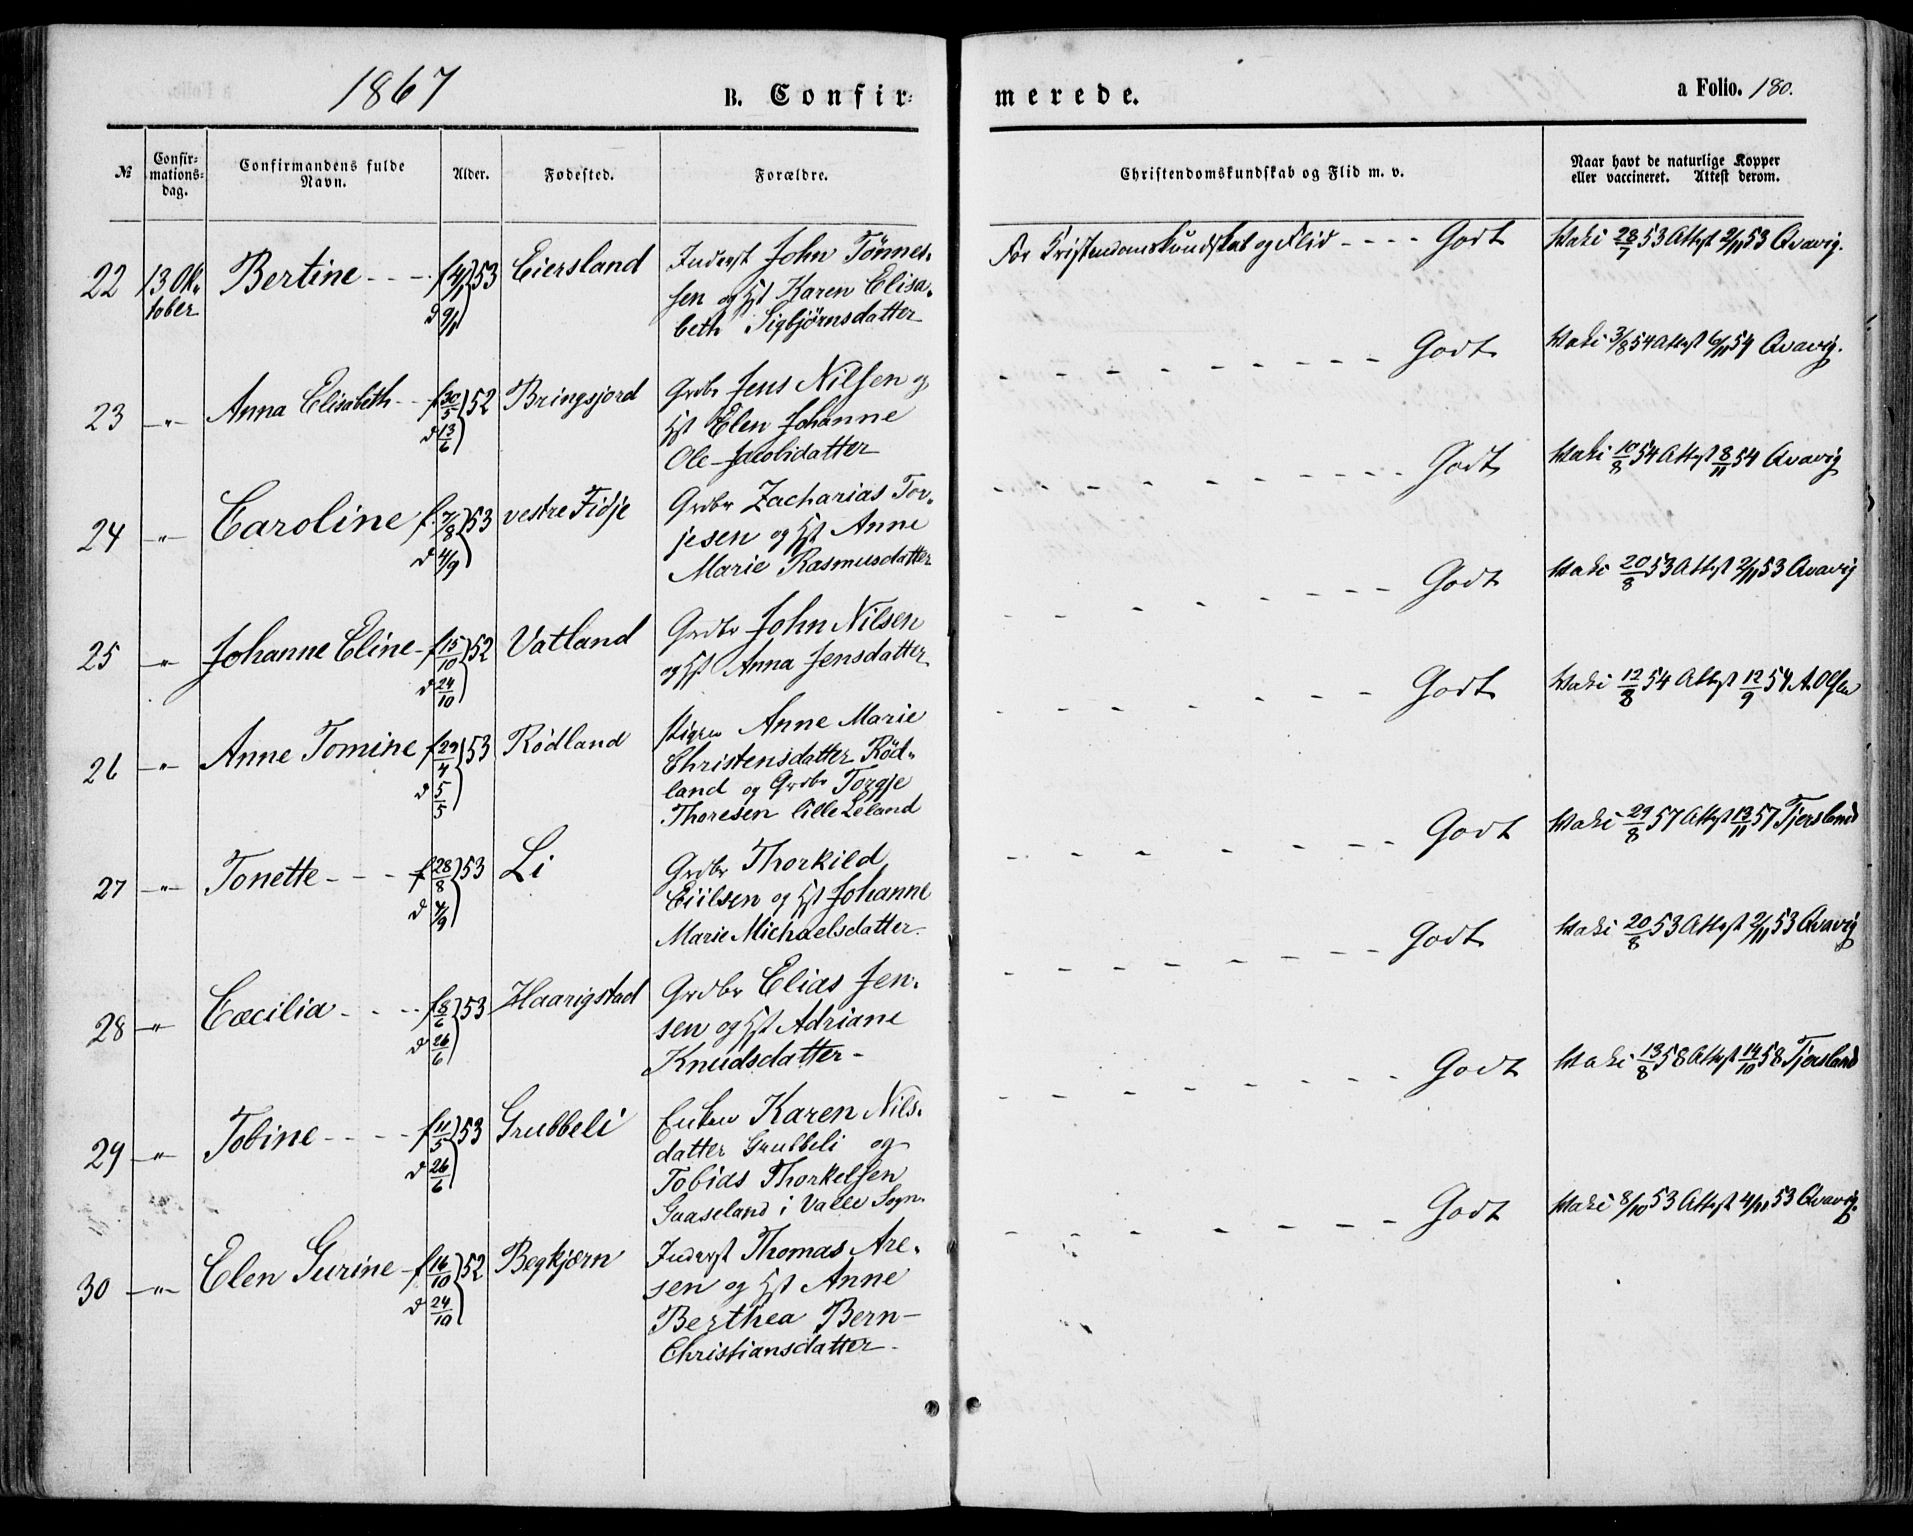 1867
B. Confir-
merede.
a Folio. 180.
№
Confir-
mations-
dag.
Confirmandens fulde
Navn.
Alder.
Fødested.
Forældre.
Christendomskundskab og Flid m. v.
Naar havt de naturlige Kopper
eller vaccineret. Attest derom.
22 13 Ok- Bertine - - - f 4/1 53 Eiersland Inderst John Tønnes-
tober d 9/1 sen og Hst Karen Elisa-
beth Sigbjørnsdatter
For Kristendomskundskab og Flid - - - - Godt Vaki 28/7 53 Attest 2/11 53 Qvavig.
23 -"- Anna Elisabeth - - f 30/5 52 Bringsjord Grdbr Jens Nilsen og
d 13/6 Hst Elen Johanne
Ole-Jacobidatter
Godt Vaki 3/8 54 Attest 6/11 54 Qvavig.
24 -"- Caroline f. 7/8 53 vestre Fidje Grdbr Zacharias Tor-
d 4/9 jesen og Hst Anne
Marie Rasmusdatter
Godt Vaki 10/8 54 Attest 8/11 54 Qvavig
25 -"- Johanne Eline - f 15/10 52 Vatland Grdbr John Nilsen
d 24/10 og Hst Anna Jensdatter
Godt Vaki 20/8 53 Attest 2/11 53 Qvavig
26 -"- Anne Tomine f 29/4 53 Rødland Pigen Anne Marie
d 5/5 Christensdatter Rød-
land og Grdbr Torgje
Thoresen lille Leland
Godt Vaki 12/8 54 Attest 12/9 54 A. Olsen
27 -"- Tonette - - - - f 28/8 53 Li Grdbr Thorkild
d 4/9 Eiilsen og Hst Johanne
Marie Michaelsdatter.
Godt Vaki 29/8 57 Attest 13/11 57 Tjersland
28 -"- Cæcilia - - - - f 8/6 53 Haarigstad Grdbr Elias Jen-
d 26/6 sen og Hst Adriane
Knudsdatter -
Godt Vaki 20/8 53 Attest 2/11 53 Qvavig
29 -"- Tobine - - - - f 11/5 53 Grubbeli Enken Karen Nils-
d 26/6 datter Grubbeli og
Tobias Thorkelsen
Gaaseland i Valle Sogn.
Godt Vaki 13/8 58 Attest 14/10 58 Tjersland
30 -"- Elen Gurine - f 16/10 52 Begkjærn Inderst Thomas Are-
d 24/10 sen og Hst Anne
Berthea Bern-
Christiansdatter -
Godt Vaki 8/10 53 Attest 4/11 53 Qvavig.